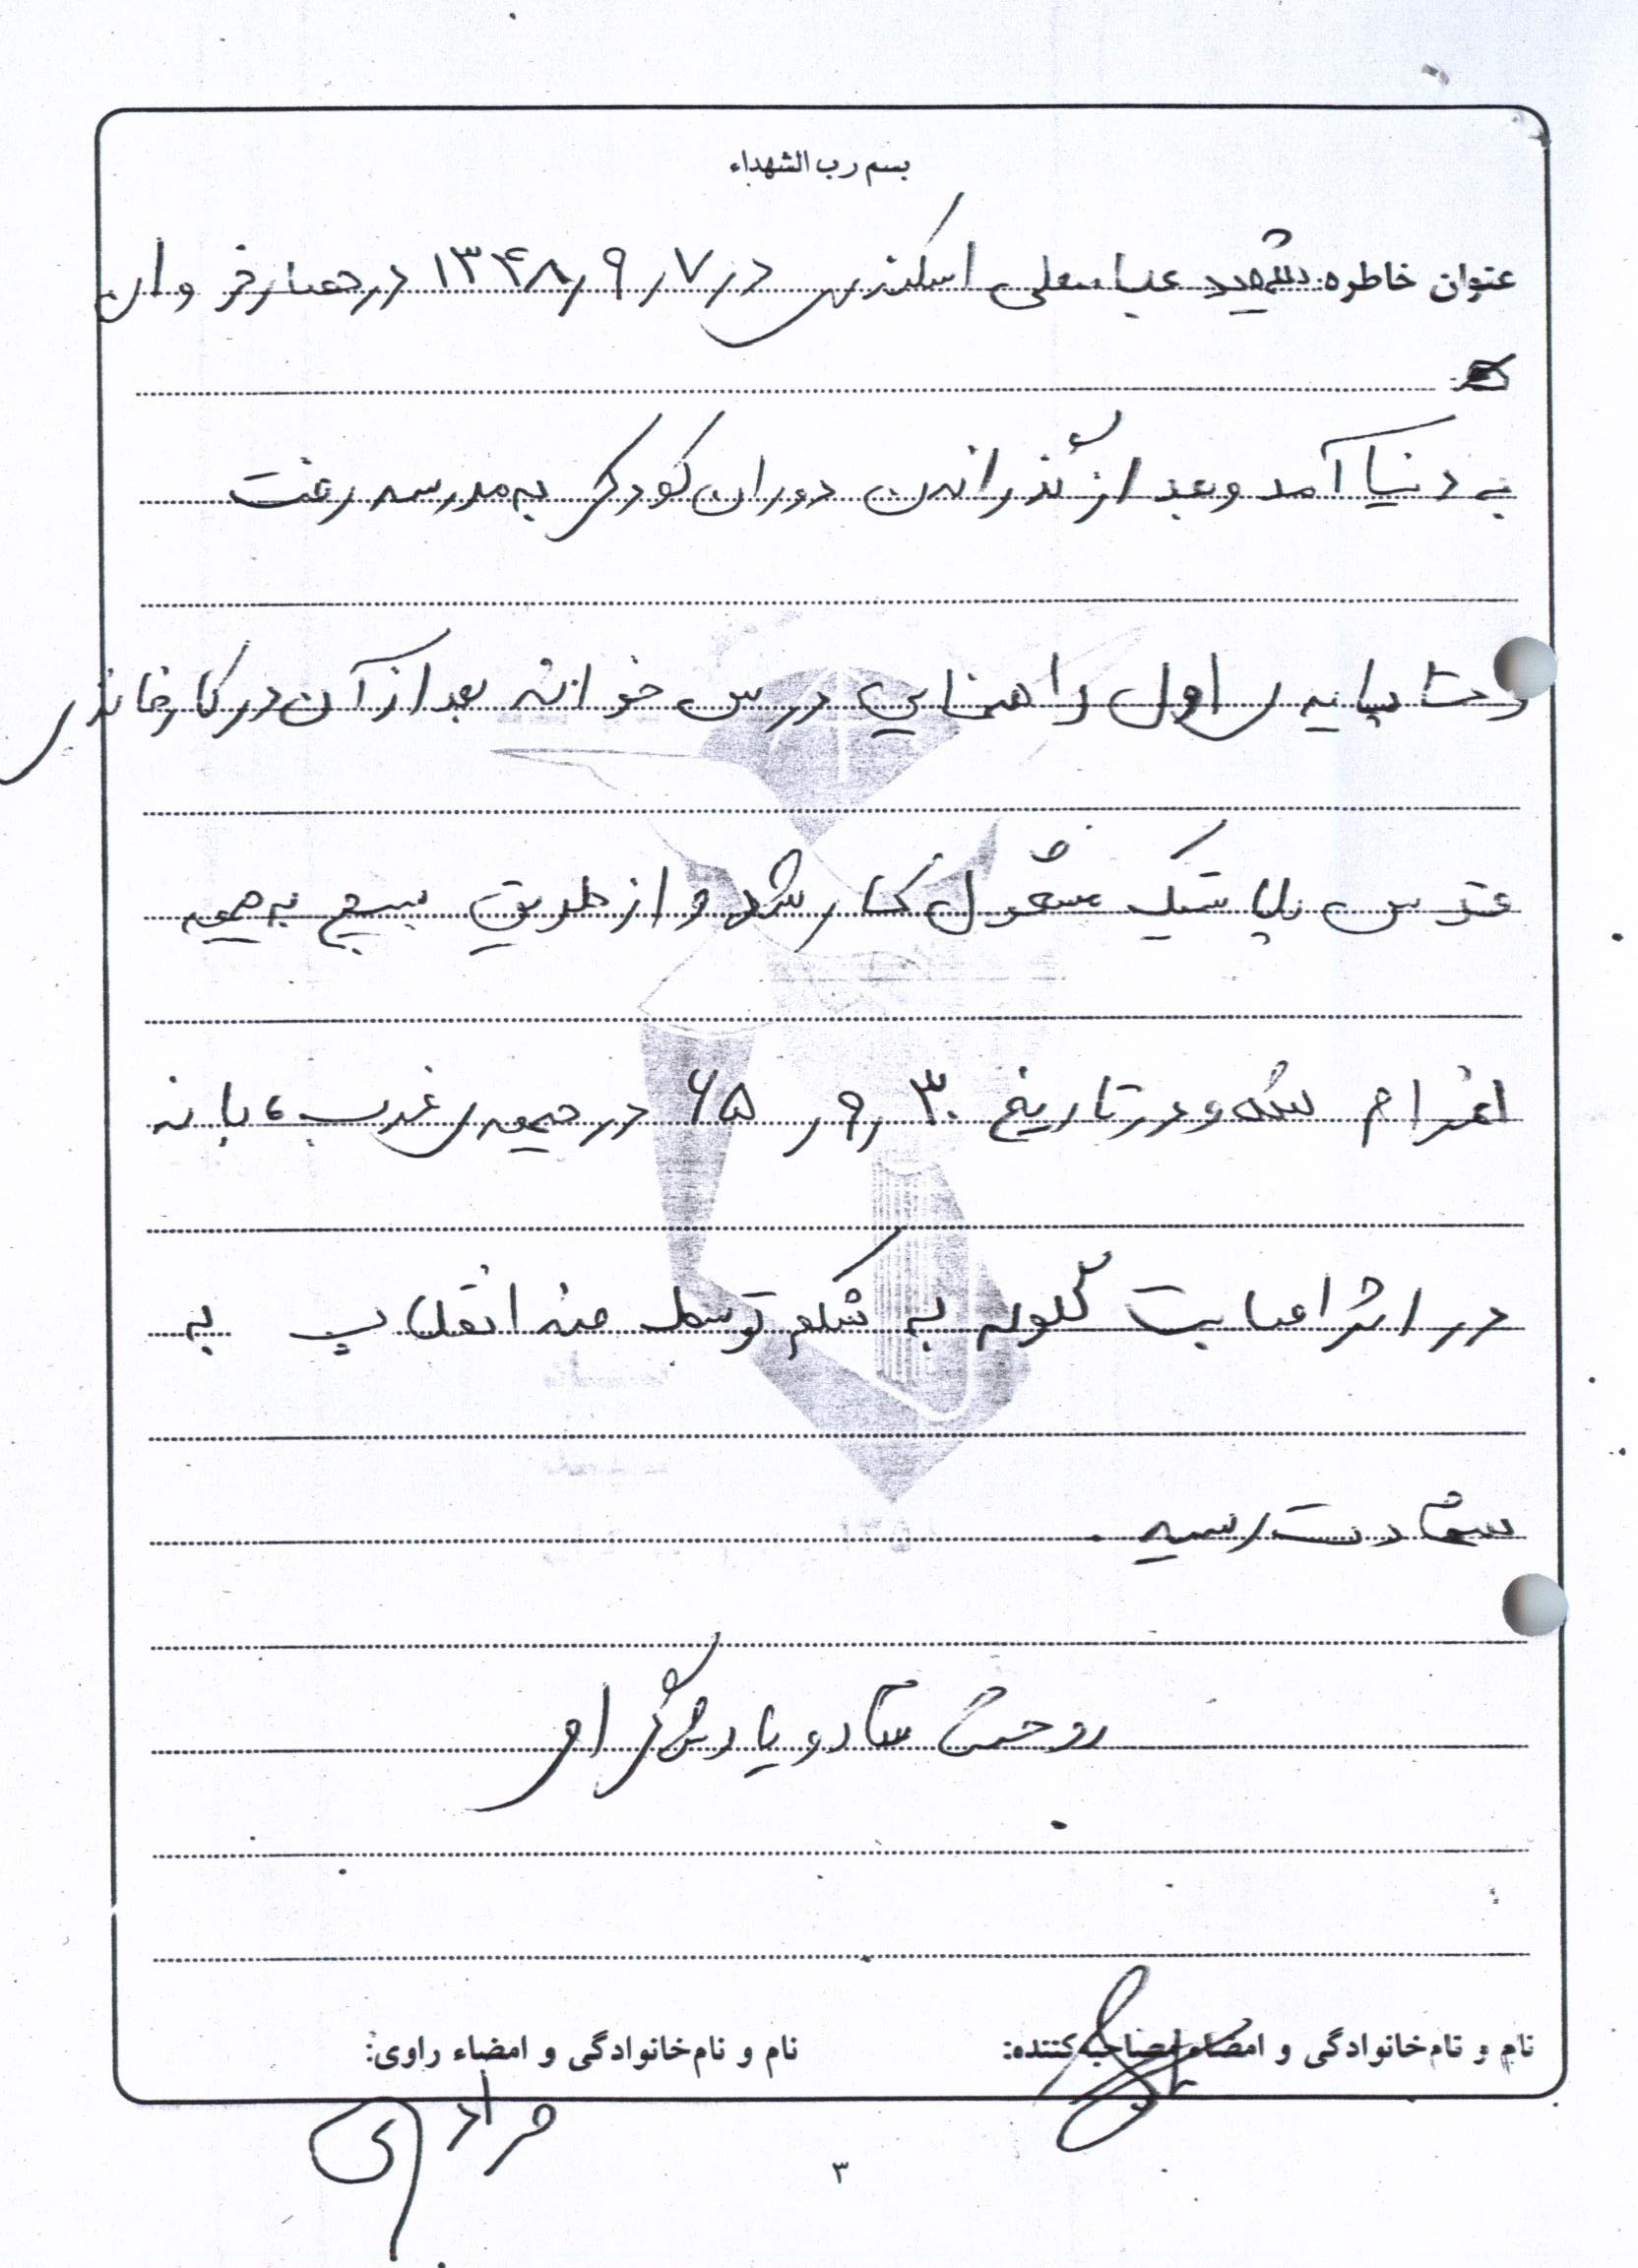 بسم رب الشهداء
عنوان خاطره: شهید عباسعلی اسکندری در ۱۳۴۸/۹/۷ در حصارخروان
به دنیا آمد و بعد از گذراندن دوران کودکی به مدرسه رفت
و تا پایه ی اول راهنمایی درس خواند بعد از آن در کارخانه ی
قدس پلاستیک مشغول کار شد و از طریق بسیج به جبهه
اعزام شد و در تاریخ ۶۵/۹/۳۰ در جبهه ی غرب، بانه
در اثر اصابت گلوله به شکم توسط ضد انقلاب به
شهادت رسید.
روحش شاد و یادش گرامی
نام و نام خانوادگی و امضاء مصاحبه کننده:
نام و نام خانوادگی و امضاء راوی:
مرادی
۳